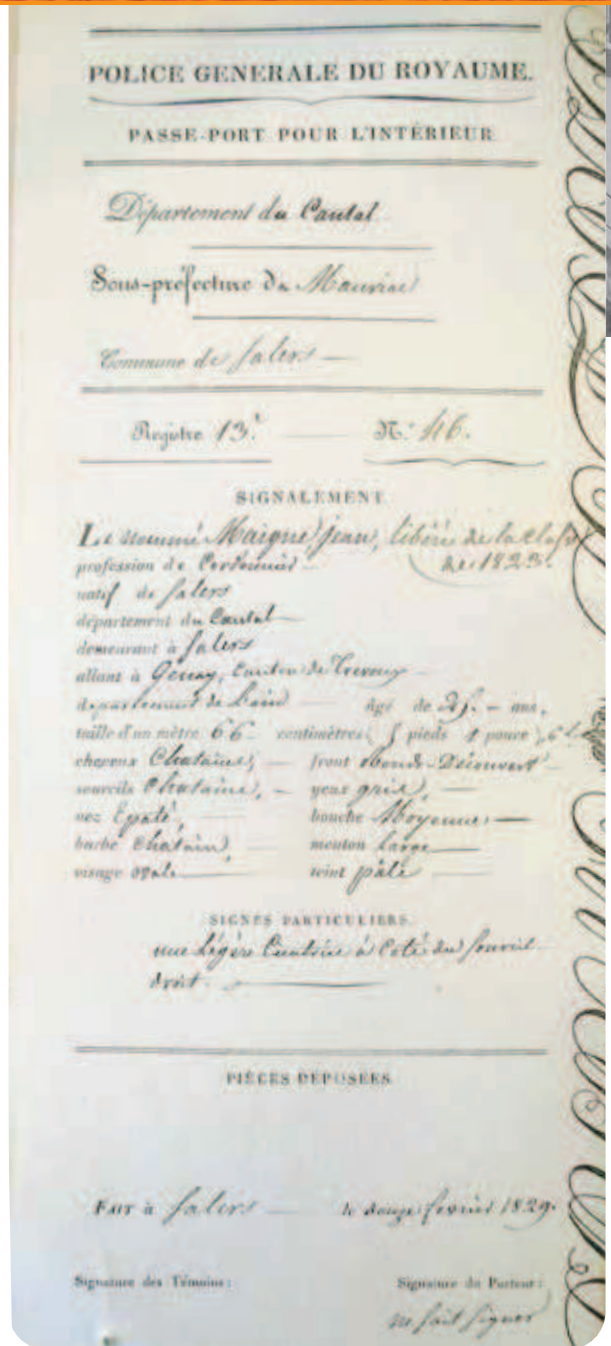 POLICE GENERALE DU ROYAUME.
PASSE-PORT POUR L'INTÉRIEUR
Département du Cantal
Sous-préfecture de Mauriac
Commune de Salers
Registre 13.e N.o 46.
SIGNALEMENT
Le nommé Maigne jean, libéré de la classe
de 1823.
profession de Cordonnier
natif de Salers
département du Cantal
demeurant à Salers
allant à Genay, Canton de Trevoux
département de L'ain âgé de ans,
taille d'un mètre 66 centimètres 5 pieds 1 pouce
cheveux Chatains, front Découvert
sourcils Chatains, yeux gris,
nez Epaté, bouche Moyenne
barbe Chatain, menton large
visage ovale teint pâle
SIGNES PARTICULIERS.
une légère à Coté du Sourcil
droit.
PIÈCES DÉPOSÉES
FAIT à Salers le douze fevrier 1829.
Signature des Témoins: Signature du Porteur:
ne sait signer